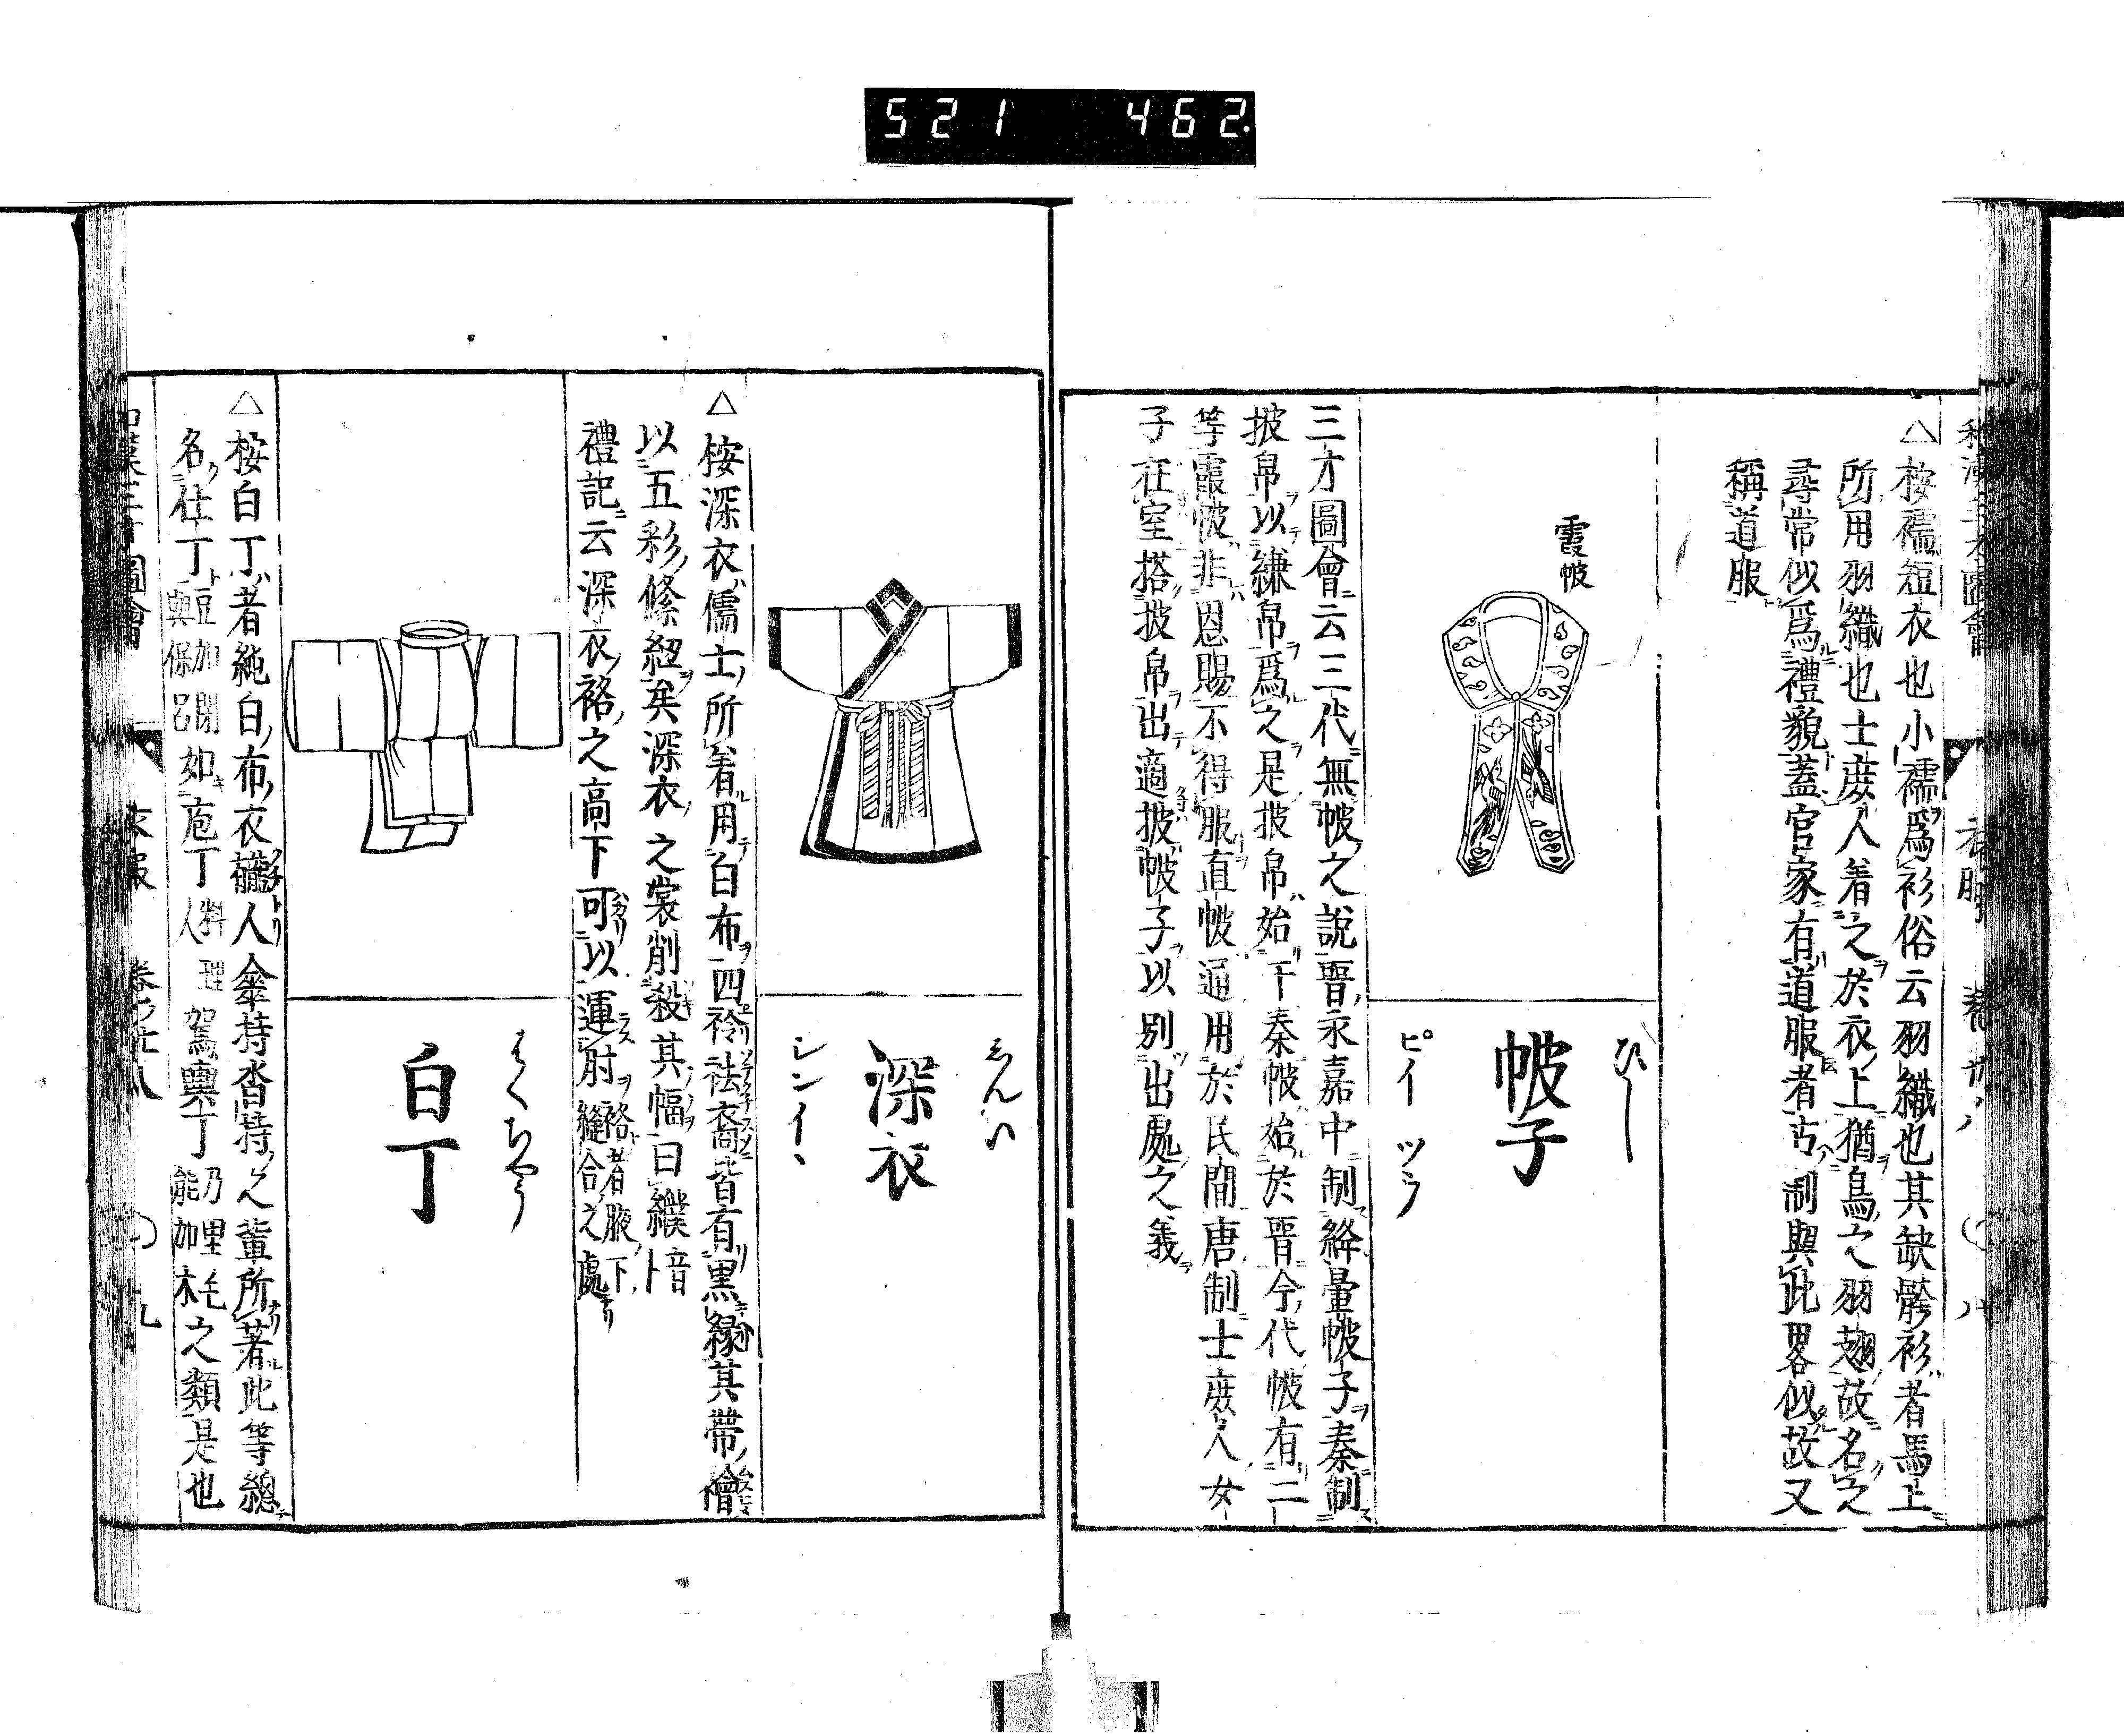 521 462.
△桉襦短衣也小襦爲衫俗云羽織也其缺骻衫者馬上
所用羽織也士庻人着之於衣上猶鳥之羽翅故名之
尋常似爲禮貌蓋官家有道服者古制與此畧似故又
稱道服
霞帔
ひし
帔子
ピイ ツウ
三才圖會云三代無帔之說晋永嘉中制絳暈帔子秦制
披帛以縑帛爲之是披帛始于秦帔始於晋今代帔有二
等霞帔非恩賜不得服直帔通用於民間唐制士庻人女
子在室搭披帛出適披帔子以別出處之義
しんい
深衣
シンイヽ
△桉深衣儒士所着用白布四袊袪裔皆有黒緣其帶繪
以五彩絛紐矣深衣之裳削殺其幅曰纀音卜
禮記云深衣袼之高下可以運肘袼者腋下縫合之處
はくちやう
白丁
△桉白丁者純白布衣櫳人傘持沓持之輩所著此等總
名仕丁豆加閉與保呂如庖丁料理人駕輿丁乃里毛能加木之類是也